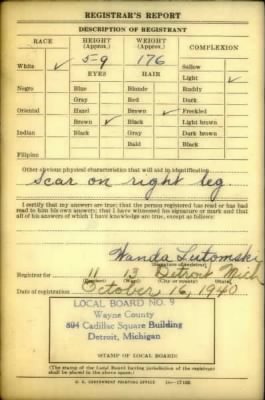 REGISTRAR'S REPORT
DESCRIPTION OF REGISTRANT
RACE HEIGHT (Approx.) WEIGHT (Approx.) COMPLEXION
5-9 176 Sallow
White ✓ EYES HAIR Light ✓
Negro Blue Blonde Ruddy
Gray Red Dark
Oriental Hazel Brown ✓ Freckled
Brown ✓ Black Light brown
Indian Black Gray Dark brown
Bald Black
Filipino
Other obvious physical characteristics that will aid in identification
Scar on right leg.
I certify that my answers are true; that the person registered has read or has had read to him his own answers; that I have witnessed his signature or mark and that all of his answers of which I have knowledge are true, except as follows:
Wanda Lutomski
Registrar for 11 13 Detroit Mich
(City or county) (State)
Date of registration October 16, 1940
LOCAL BOARD NO. 9
Wayne County
894 Cadillac Square Building
Detroit, Michigan
(STAMP OF LOCAL BOARD)
(The stamp of the Local Board having jurisdiction of the registrant shall be placed in the above space.)
U. S. GOVERNMENT PRINTING OFFICE